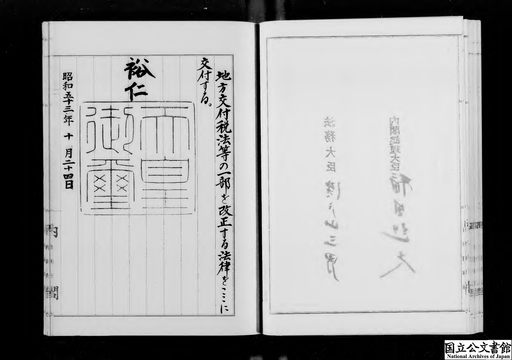 地方交付税法等の一部を改正する法律をここに
交付する。
裕仁
天皇
御璽
昭和五十三年 十 月二十四日
内閣
内閣総理大臣
福田赳夫
法務大臣
瀬戸山三男
国立公文書館
National Archives of Japan